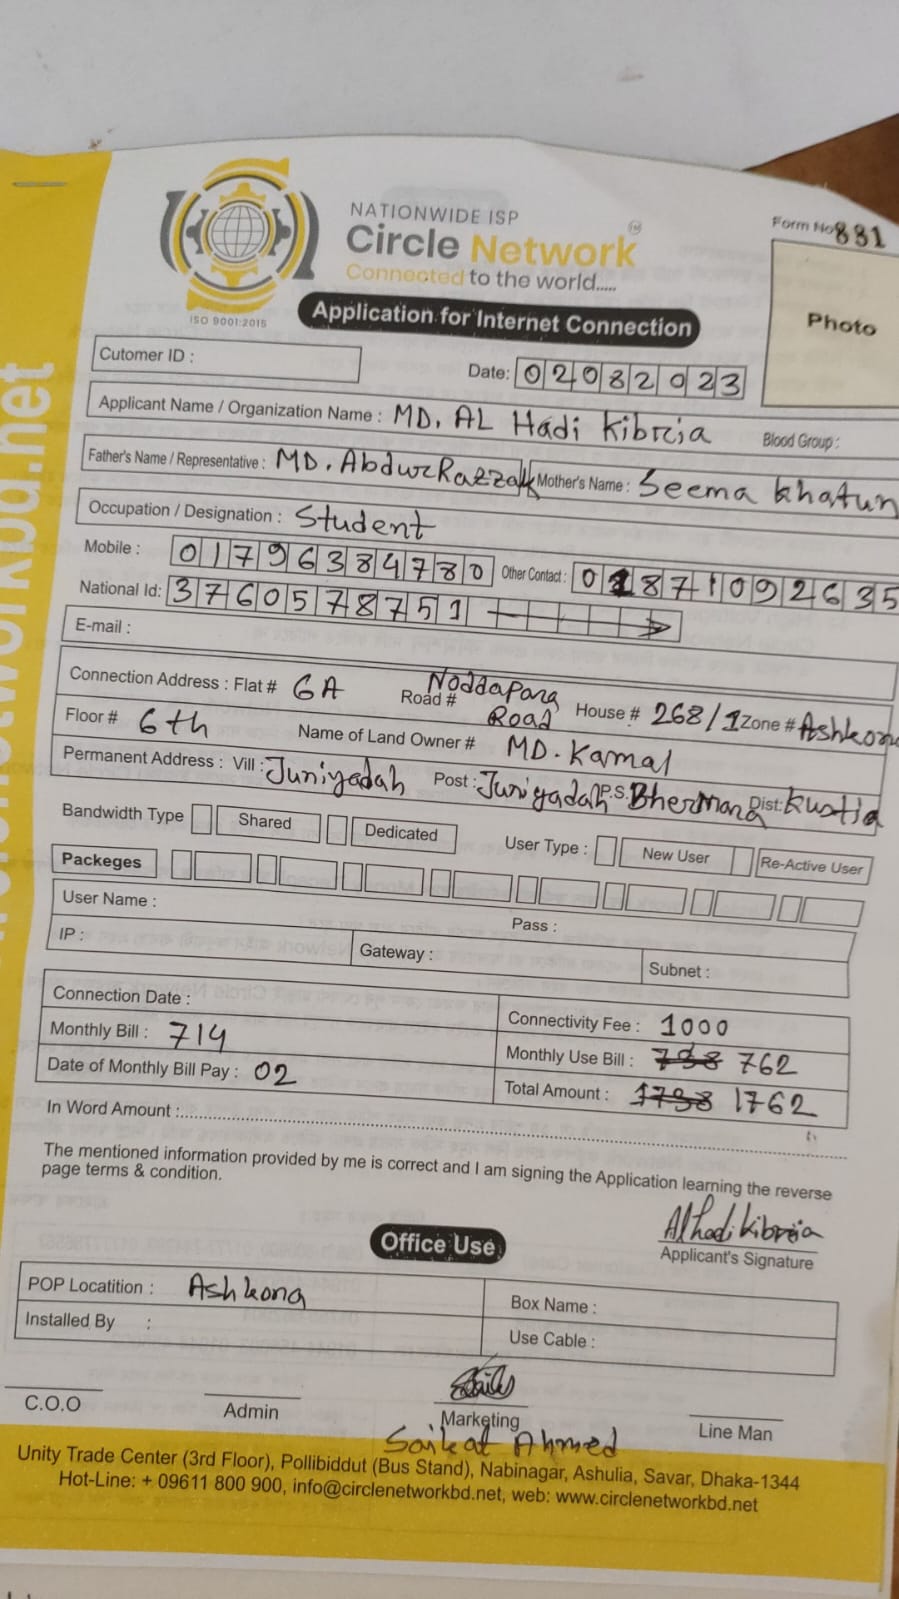 NATIONWIDE ISP
Circle Network
Connected to the world.....
ISO 9001:2015
Form No 881
Photo
Application for Internet Connection
Cutomer ID :
Date: 02082023
Applicant Name / Organization Name : MD. AL Hadi Kibria Blood Group :
Father's Name / Representative : MD. Abdur Razzak Mother's Name : Seema Khatun
Occupation / Designation : Student
Mobile : 01796384780 Other Contact : 01871092635
National Id: 3760578751
E-mail :
Connection Address : Flat # 6A Road # Noddapara Road House # 268/1 Zone # Ashkona
Floor # 6th Name of Land Owner # MD. Kamal
Permanent Address : Vill : Juniyadah Post : Juniyadah P.S. Bhermara Dist: Kustia
Bandwidth Type Shared Dedicated User Type : New User Re-Active User
Packeges
User Name : Pass :
IP : Gateway : Subnet :
Connection Date :
Connectivity Fee : 1000
Monthly Bill : 714
Monthly Use Bill : 738 762
Date of Monthly Bill Pay : 02
Total Amount : 1738 1762
In Word Amount :
The mentioned information provided by me is correct and I am signing the Application learning the reverse
page terms & condition.
Al hadi kibria
Applicant's Signature
Office Use
POP Locatition : Ashkona
Box Name :
Installed By :
Use Cable :
C.O.O Admin Marketing Line Man
Saikat Ahmed
Unity Trade Center (3rd Floor), Pollibiddut (Bus Stand), Nabinagar, Ashulia, Savar, Dhaka-1344
Hot-Line: + 09611 800 900, info@circlenetworkbd.net, web: www.circlenetworkbd.net